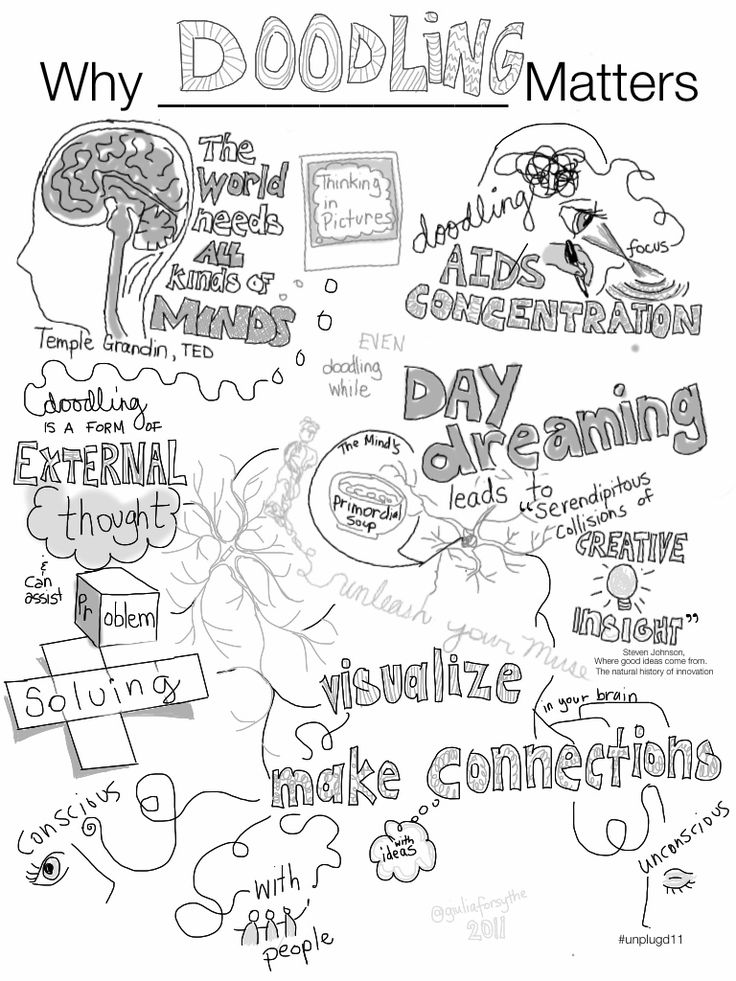 Why DOODLING Matters
The
World
needs
ALL
kinds of
MINDS
Temple Grandin, TED
Thinking
in
Pictures
doodling
AIDS
CONCENTRATION
focus
EVEN
doodling
while
DAY
dreaming
leads to
"Serendipitous
Collisions of
CREATIVE
INSIGHT"
Steven Johnson,
Where good ideas come from.
The natural history of innovation
The Mind's
Primordial
Soup
doodling
IS A FORM OF
EXTERNAL
thought
&
can
assist
Problem
Solving
unleash your Muse
visualize
in your brain
make connections
conscious
with
people
with
ideas
unconscious
@giuliaforsythe
2011
#unplugd11